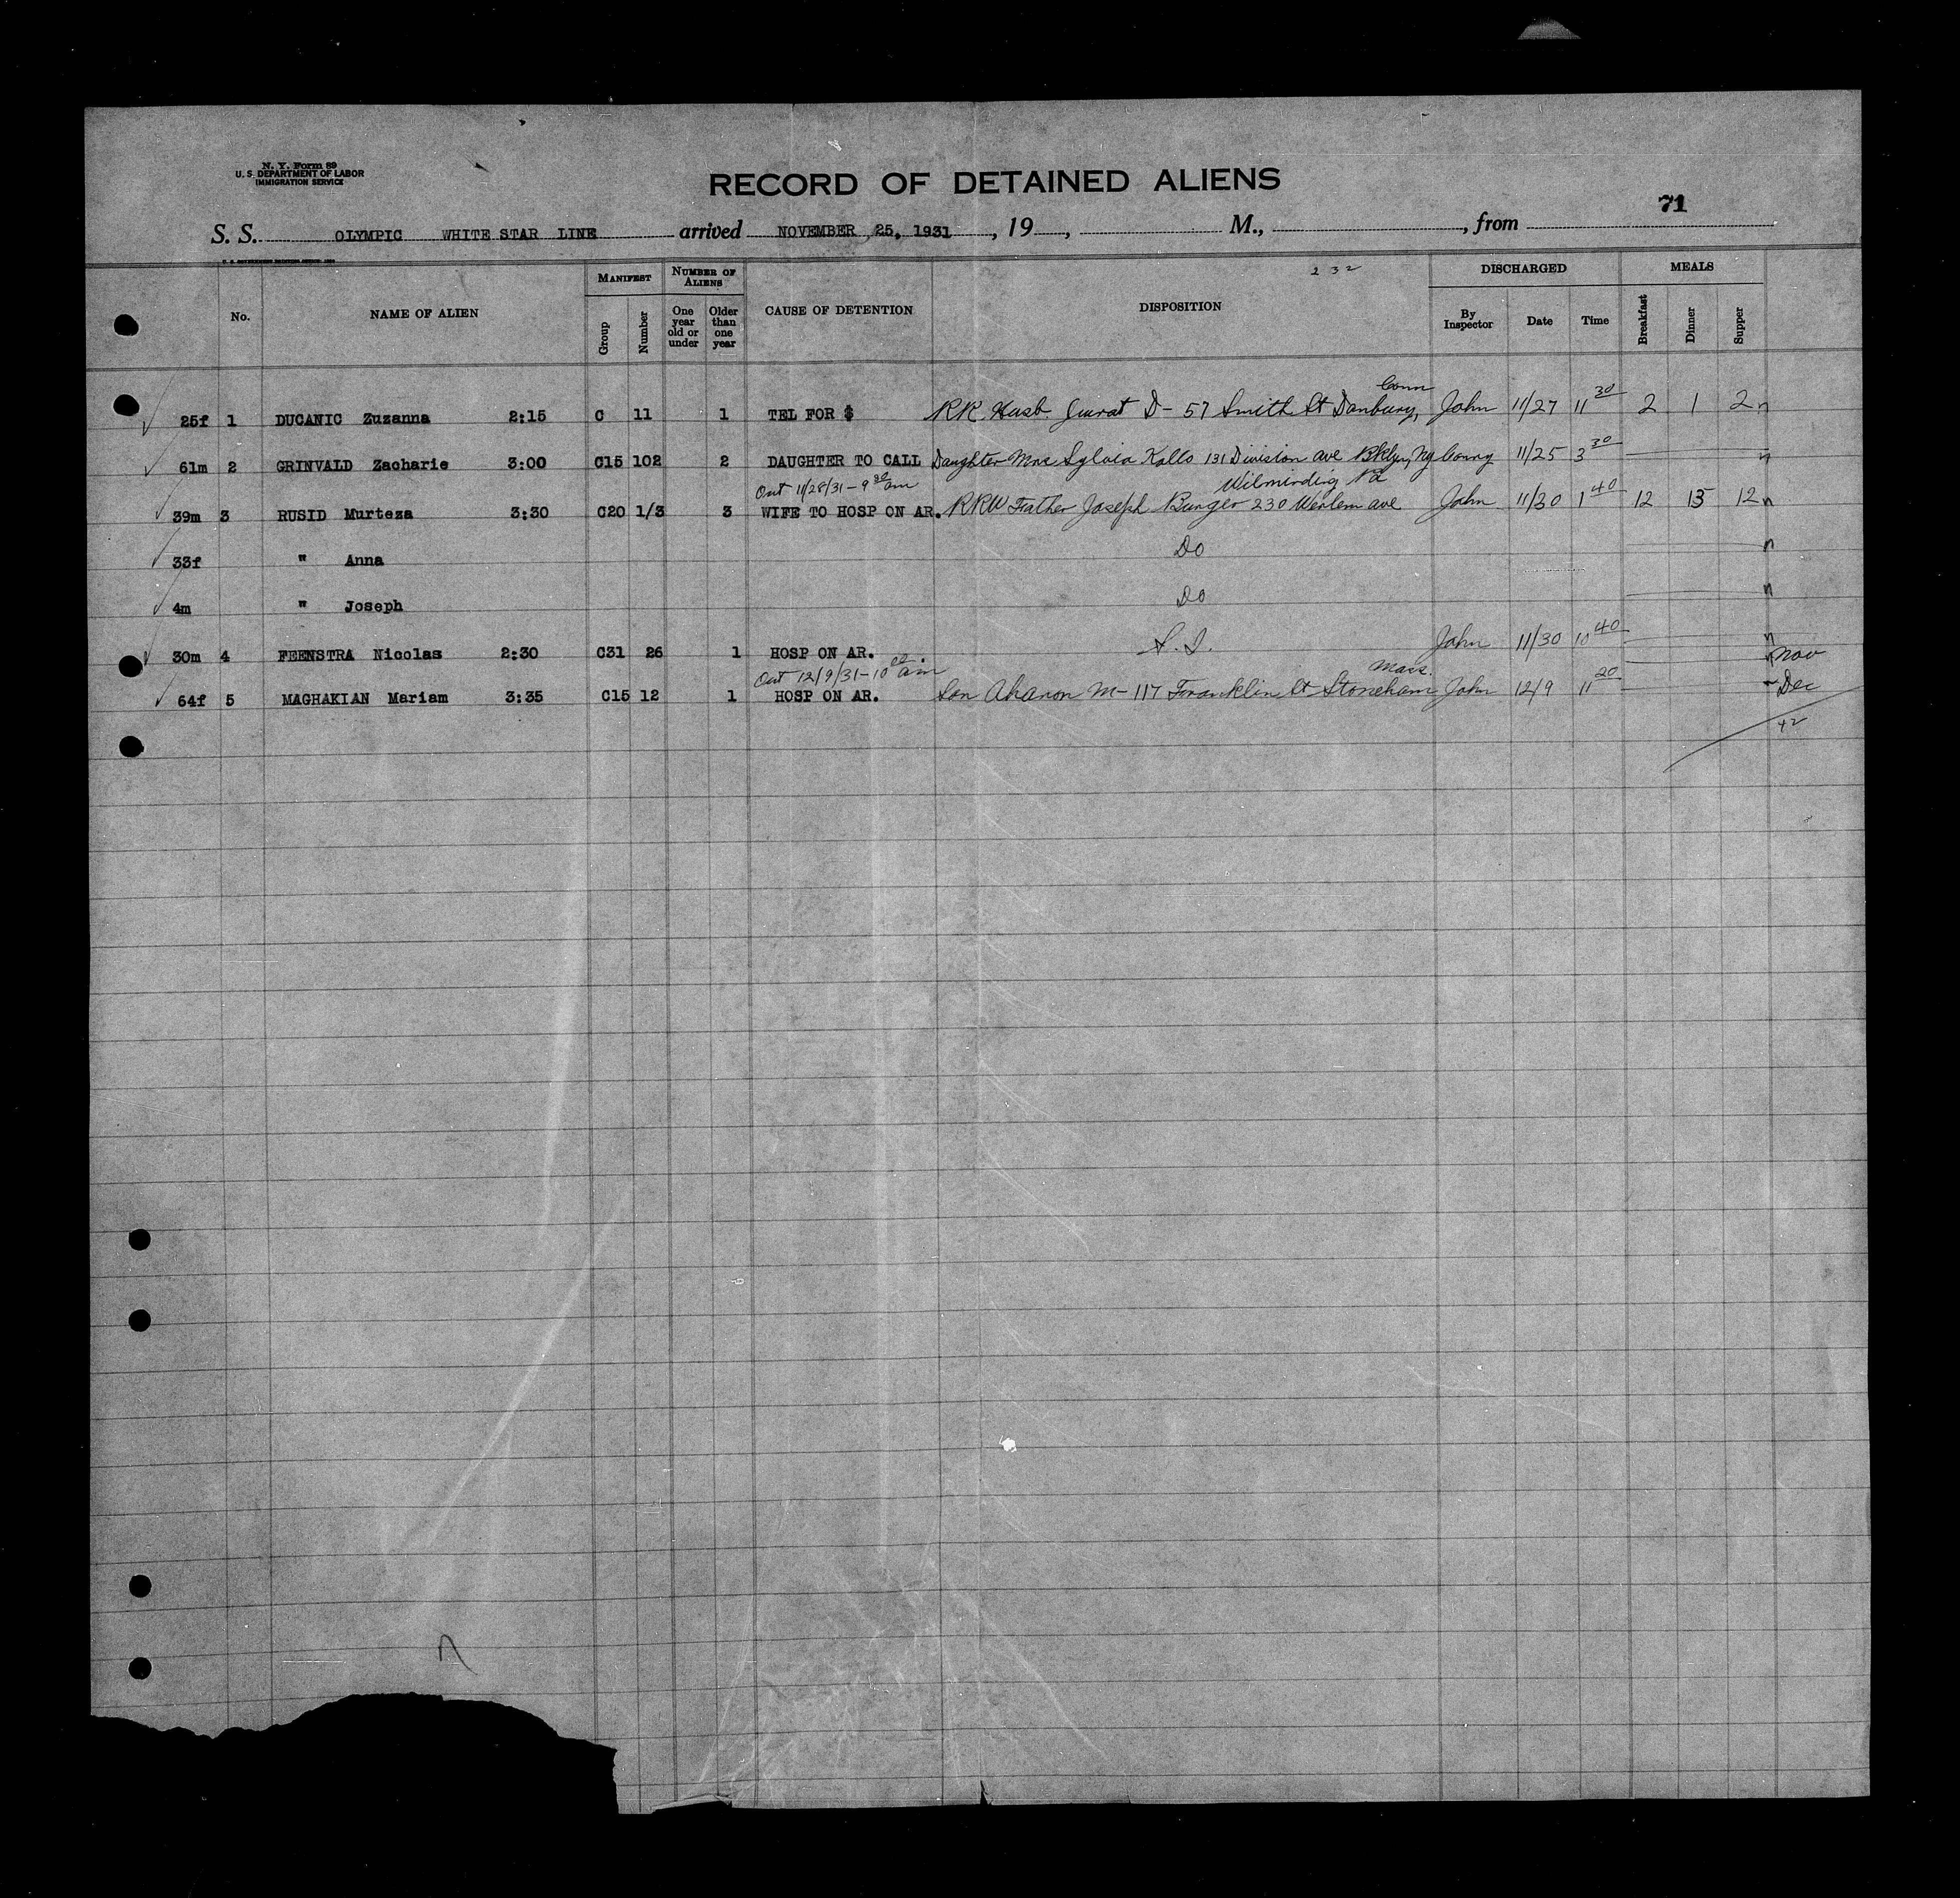 N. Y. Form 89
U. S. DEPARTMENT OF LABOR
IMMIGRATION SERVICE
RECORD OF DETAINED ALIENS
71
S. S. OLYMPIC WHITE STAR LINE arrived NOVEMBER 25, 1931, 19 , M., , from
232
No. NAME OF ALIEN MANIFEST Group Number NUMBER OF ALIENS One year old or under Older than one year CAUSE OF DETENTION DISPOSITION DISCHARGED By Inspector Date Time MEALS Breakfast Dinner Supper
Conn
25f 1 DUCANIC Zuzanna 2:15 C 11 1 TEL FOR $ RR Husb. D- 57 Smith St Danbury, John 11/27 11 30 2 1 2 n
61m 2 GRINVALD Zacharie 3:00 C15 102 2 DAUGHTER TO CALL Daughter Mrs Sylvia Kallo 131 Division ave Bklyn, Ny 11/25 3 30 n
Out 11/28/31 - 9 30 am Wilmerding Pa
39m 3 RUSID Murteza 3:30 C20 1/3 3 WIFE TO HOSP ON AR. RRW Father Joseph Bunger 230 ave John 11/30 1 40 12 13 12 n
33f " Anna Do n
4m " Joseph Do n
30m 4 FEENSTRA Nicolas 2:30 C31 26 1 HOSP ON AR. S. I. John 11/30 10 40 n
Nov
Out 12/9/31 - 10 00 am Mass.
64f 5 MAGHAKIAN Mariam 3:35 C15 12 1 HOSP ON AR. Son Aharon M- 117 Franklin St Stoneham John 12/9 11 20 Dec
42
n